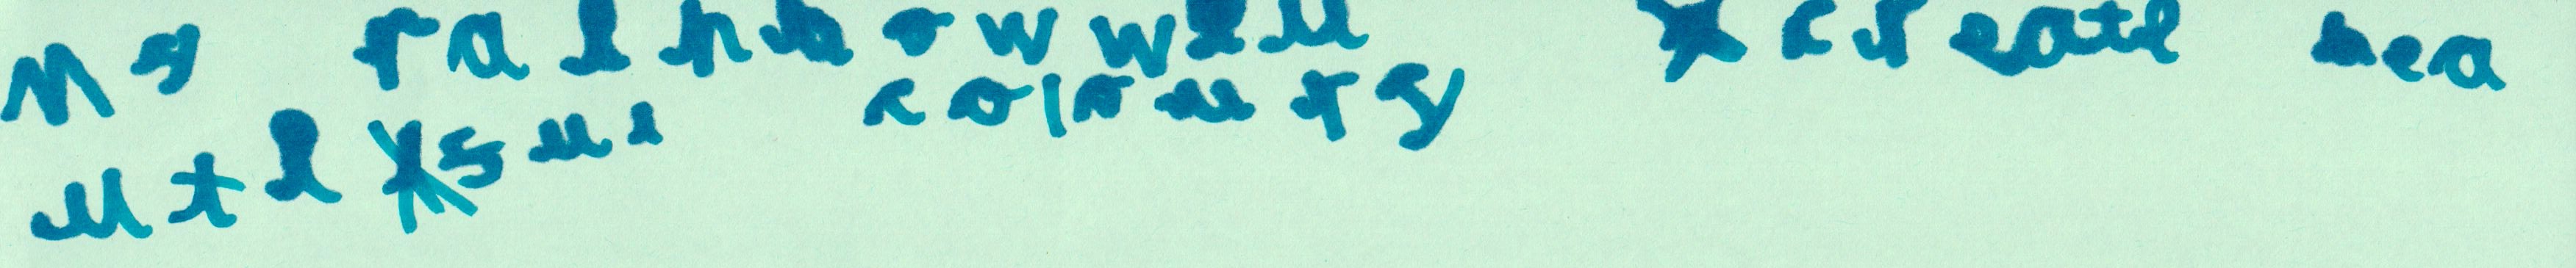 My rainbow will create bea
utiful colours